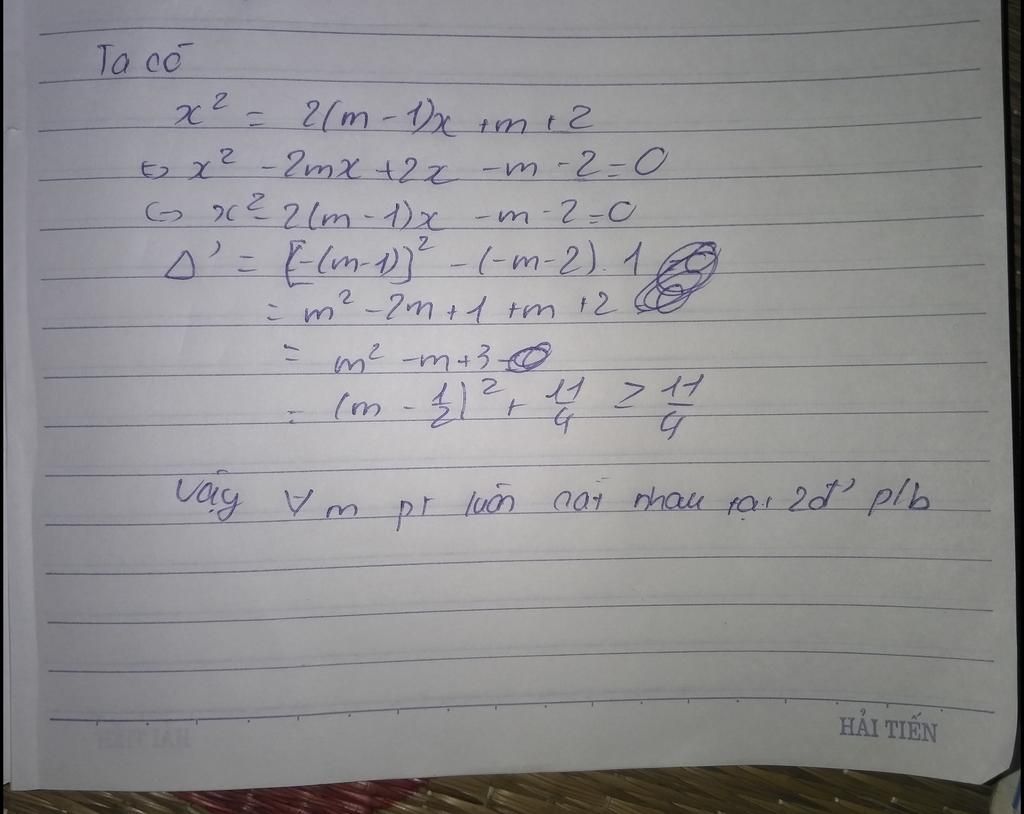 Ta có
x² = 2(m - 1)x + m + 2
⇔ x² - 2mx + 2x - m - 2 = 0
⇔ x² - 2(m - 1)x - m - 2 = 0
Δ' = [-(m-1)]² - (-m-2).1
= m² - 2m + 1 + m + 2
= m² - m + 3
= (m - 1/2)² + 11/4 ≥ 11/4
Vậy ∀m pt luôn cắt nhau tại 2đ' p/b
HẢI TIẾN